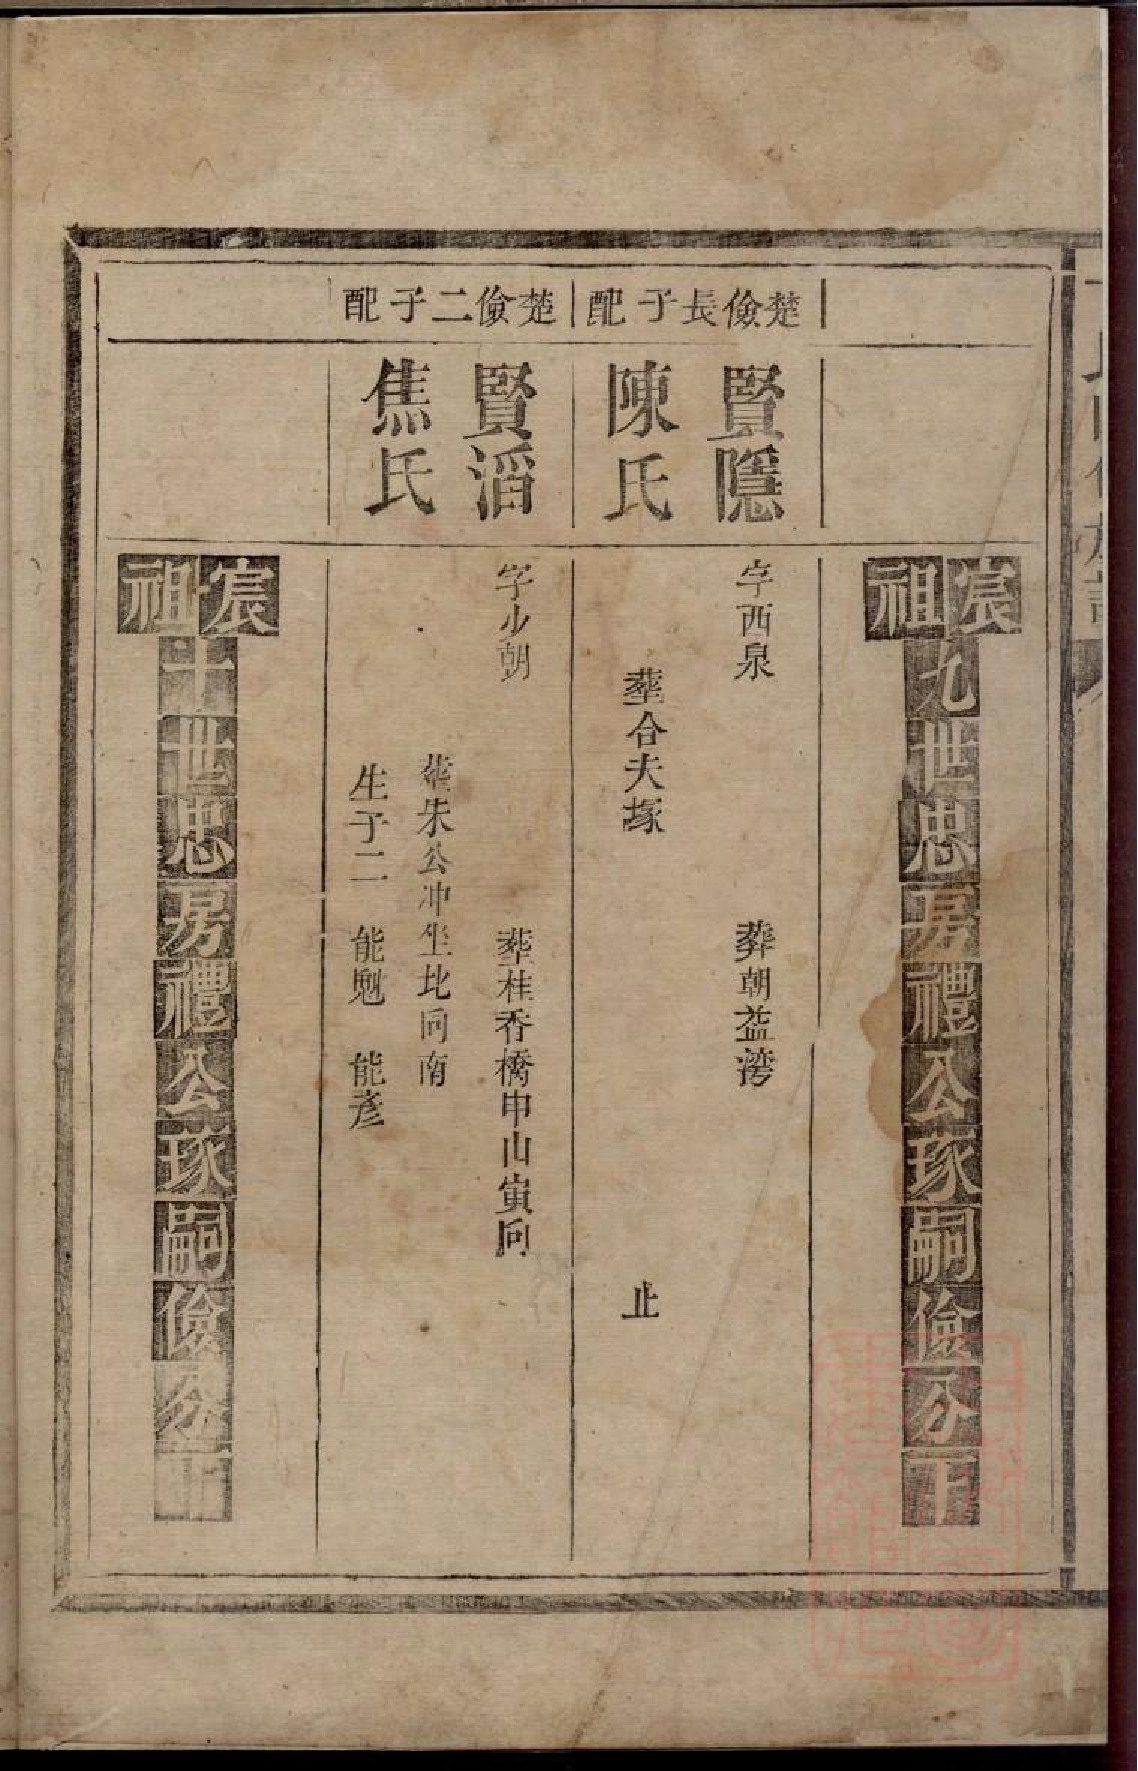 宸祖九世忠房禮公琢嗣儉公下
楚儉長子配
賢隱
字西泉 葬朝益灣
陳氏
葬合夫塚 止
楚儉二子配
賢滔
字少朝 葬桂香橋申山寅向
焦氏
葬朱公冲坐北向南
生子二 能魁 能彥
宸祖十世忠房禮公琢嗣儉公